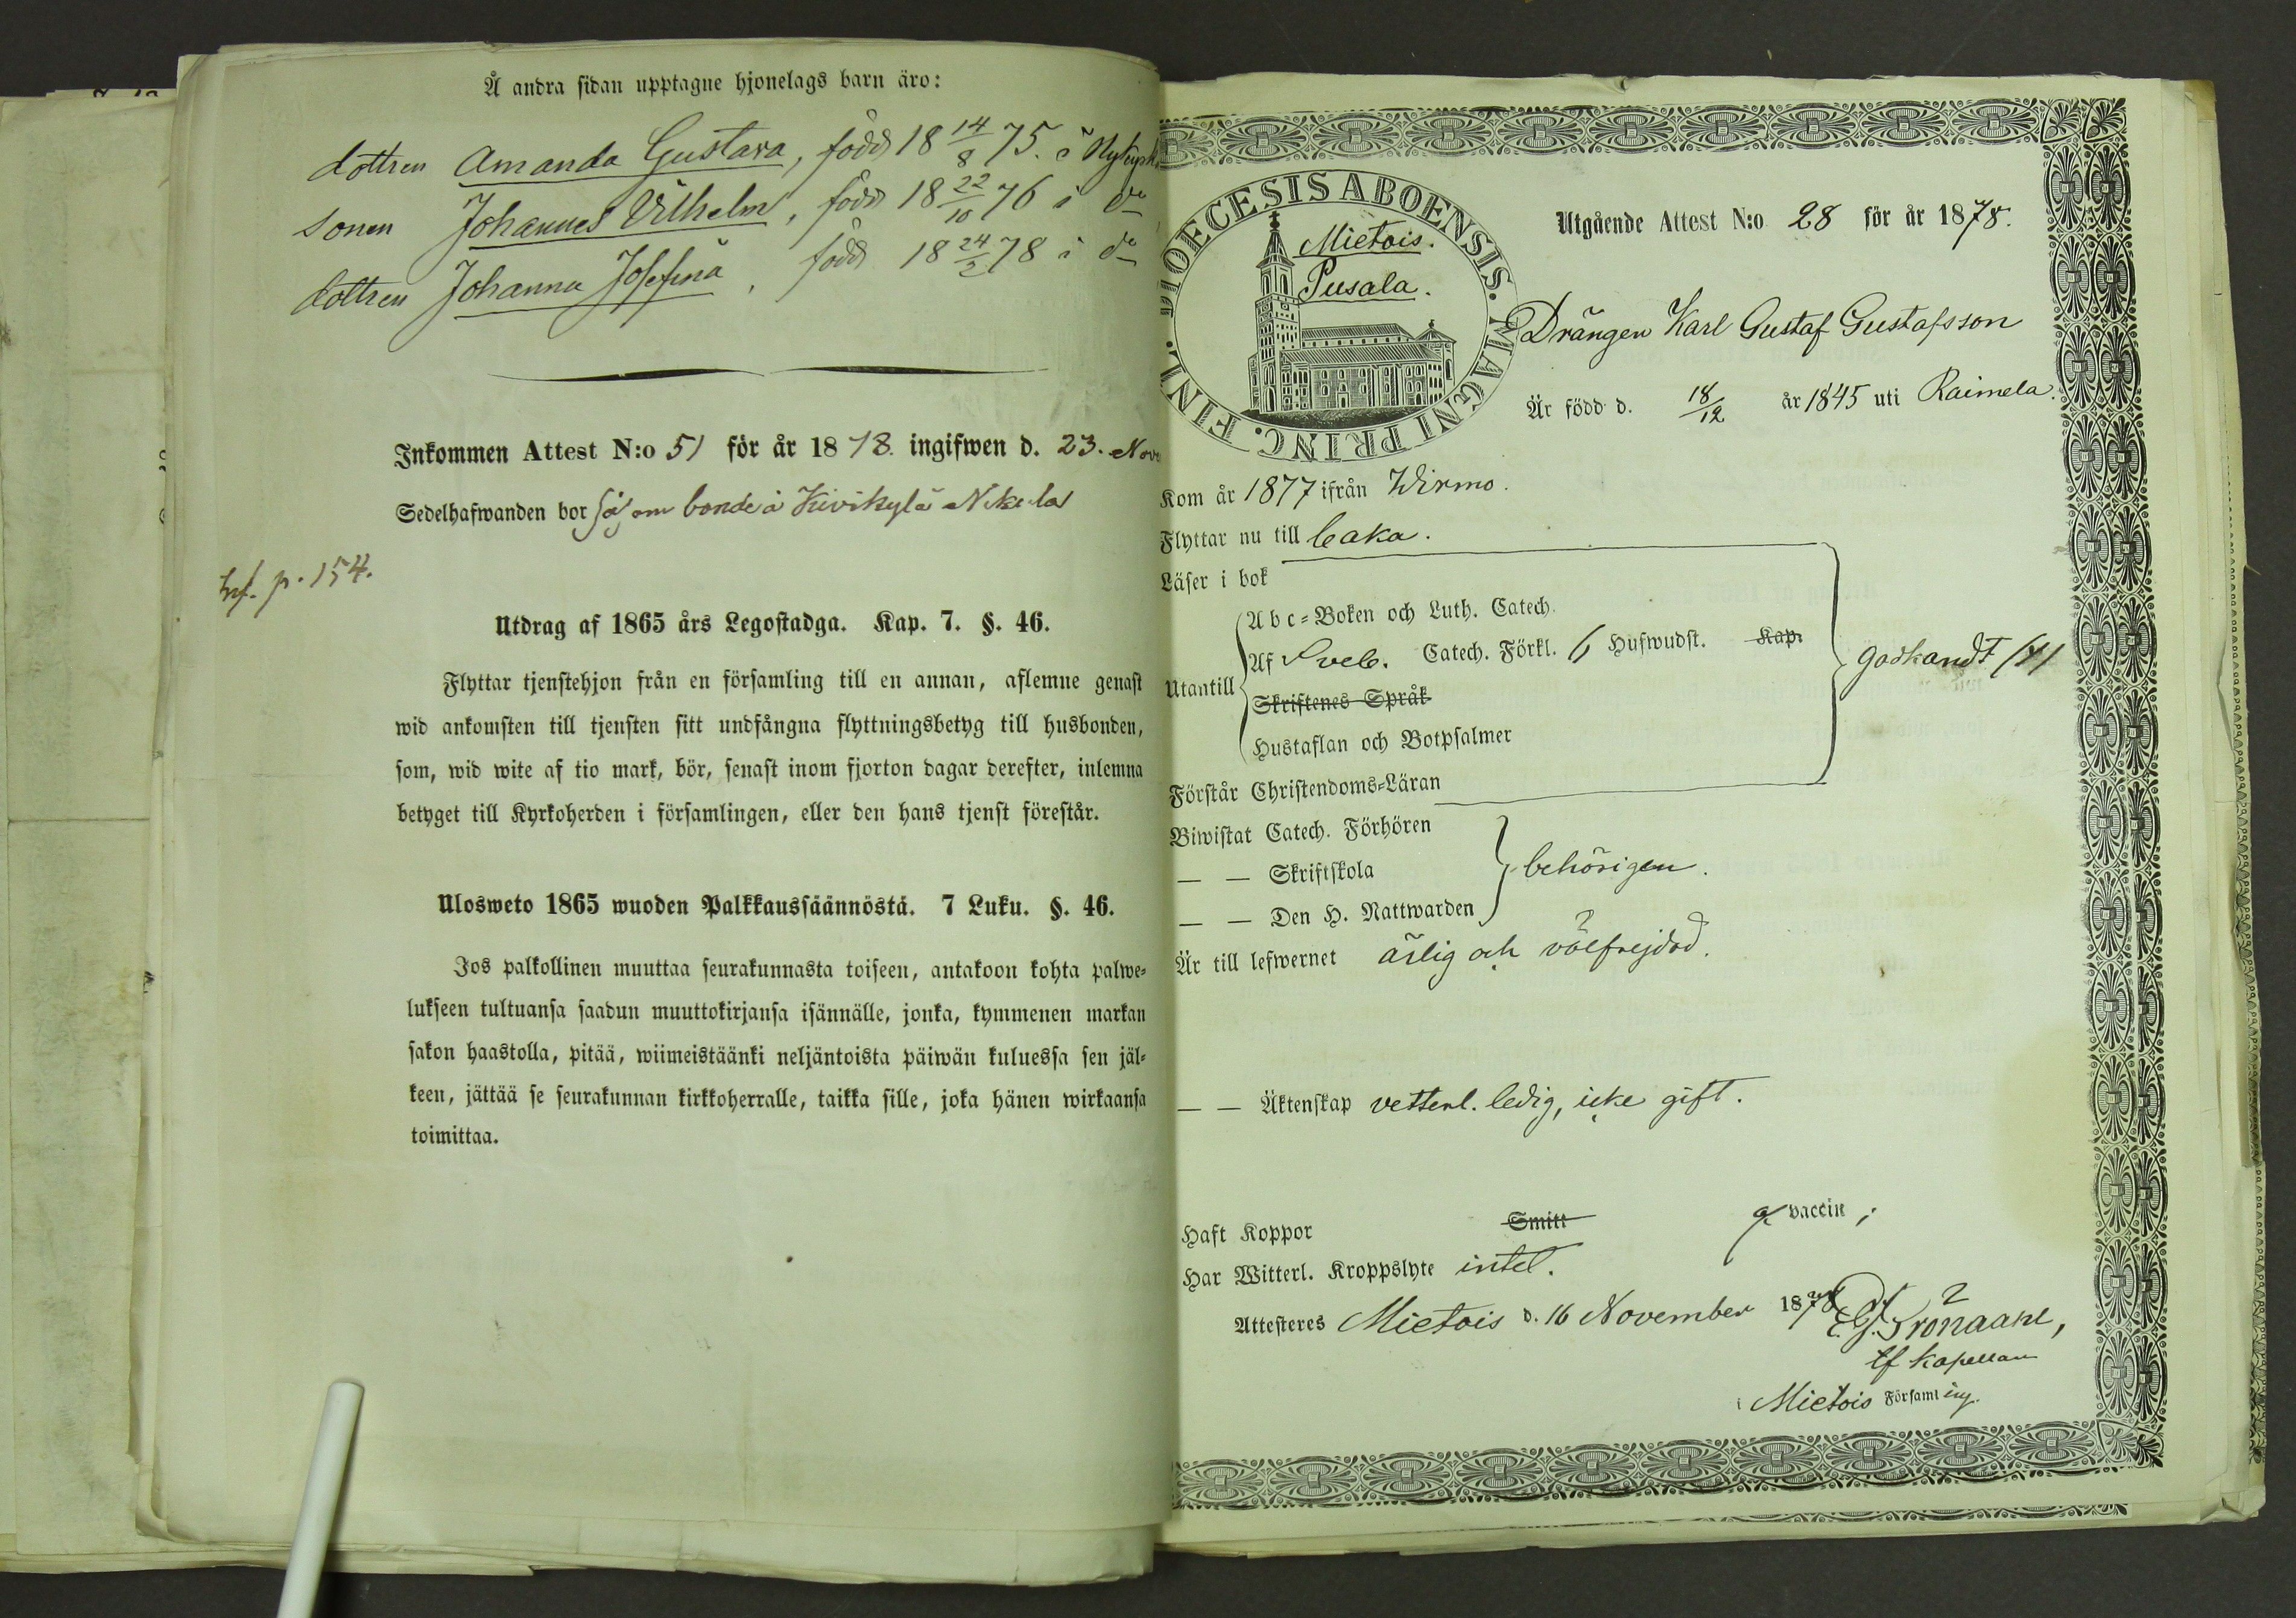 Å andra sidan upptagne hjonelags barn äro:
dottren Amanda Gustava, född 18 14/8 75. i Nykyrk
sonen Johannes Vilhelm, född 18 22/10 76 i do
dottren Johanna Josefina, född 18 24/2 78 i do
Inkommen Attest N:o 51 för år 1878. ingifwen d. 23. Nov
Sedelhafwanden bor såsom bonde å Kivikylä Nikula
hf. p. 154.
Utdrag af 1865 års Legostadga. Kap. 7. §. 46.
Flyttar tjenstehjon från en församling till en annan, aflemne genast
wid ankomsten till tjensten sitt undfångna flyttningsbetyg till husbonden,
som, wid wite af tio mark, bör, senast inom fjorton dagar derefter, inlemna
betyget till Kyrkoherden i församlingen, eller den hans tjenst förestår.
Ulosweto 1865 wuoden Palkkaussäännöstä. 7 Luku. §. 46.
Jos palkollinen muuttaa seurakunnasta toiseen, antakoon kohta palwe-
lukseen tultuansa saadun muuttokirjansa isännälle, jonka, kymmenen markan
sakon haastolla, pitää, wiimeistäänki neljäntoista päiwän kuluessa sen jäl-
keen, jättää se seurakunnan kirkkoherralle, taikka sille, joka hänen wirkaansa
toimittaa.
DIOECESIS ABOENSIS. MAGNI PRINC. FINL.
Mietois.
Pusala.
Utgående Attest N:o 28 för år 1878.
Drängen Karl Gustaf Gustafsson
Är född d. 18/12 år 1845 uti Raimela.
Kom år 1877 ifrån Wirmo.
Flyttar nu till Caka.
Läser i bok
Utantill
Abc-Boken och Luth. Catech.
Af Sveb. Catech. Förkl. 6 Hufwudst. Kap.
Skriftenes Språk
Hustaflan och Botpsalmer
godkandt
Förstår Christendoms-Läran
Biwistat Catech. Förhören
— — Skriftskola
— — Den H. Nattwarden
behörigen.
Är till lefwernet ärlig och välfrejdad.
— — Äktenskap vetterl. ledig, icke gift.
Haft Koppor Smitt g. vaccin;
Har Witterl. Kroppslyte intet.
Attesteres Mietois d. 16 November 1878
tf kapellan
i Mietois Församling.